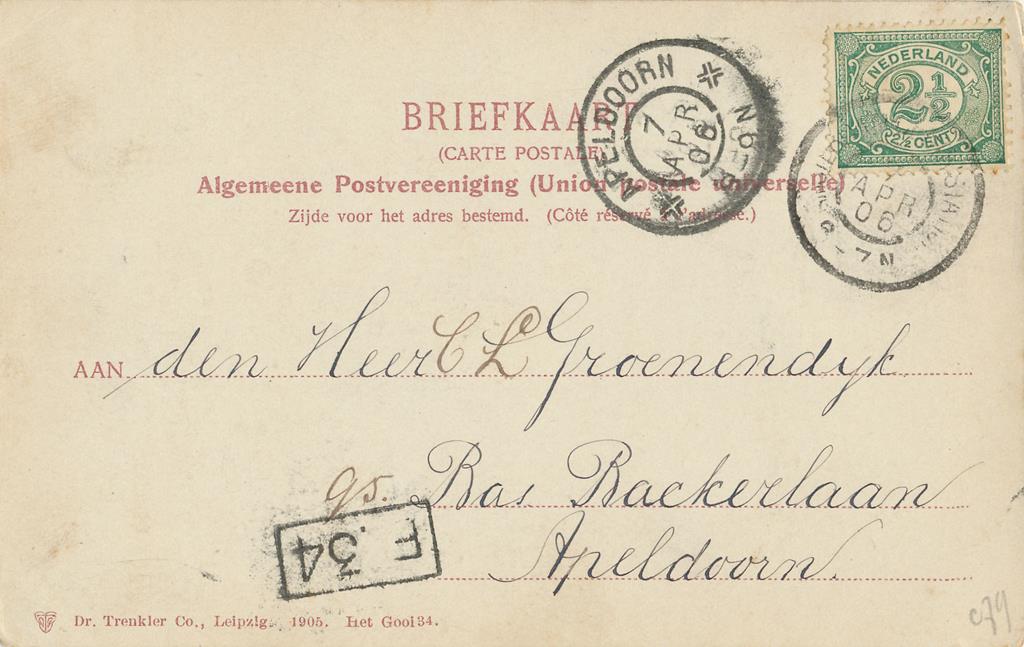 BRIEFKAART
(CARTE POSTALE)
Algemeene Postvereeniging (Union postale universelle)
Zijde voor het adres bestemd. (Côté réservé à l'adresse.)
NEDERLAND
2½
2½ CENT
APELDOORN
7
APR
06
APR
06
6-7N
AAN den Heer C L Groenendyk
95. Bas Backerlaan
Apeldoorn.
F.
34
Dr. Trenkler Co., Leipzig. 1905. Het Gooi 34.
c79